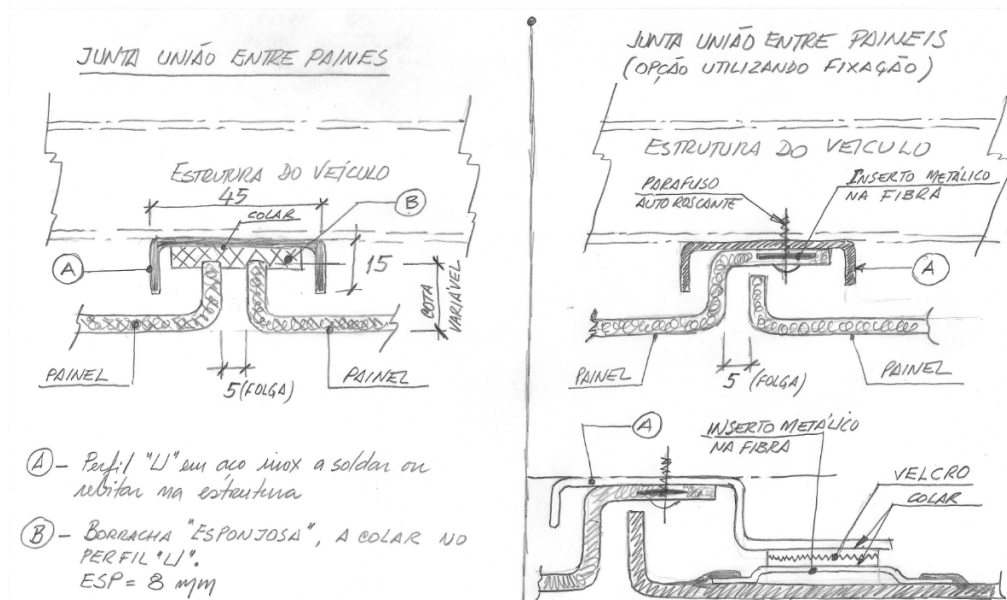 JUNTA UNIÃO ENTRE PAINES
ESTRUTURA DO VEÍCULO
45
COLAR
B
A
15
COTA
VARIÁVEL
PAINEL
5 (FOLGA)
PAINEL
A - Perfil "U" em aço inox a soldar ou
rebitar na estrutura
B - BORRACHA "ESPONJOSA", A COLAR NO
PERFIL "U".
ESP = 8 mm
JUNTA UNIÃO ENTRE PAINEIS
(OPÇÃO UTILIZANDO FIXAÇÃO)
ESTRUTURA DO VEÍCULO
PARAFUSO
AUTO ROSCANTE
INSERTO METÁLICO
NA FIBRA
A
PAINEL
5 (FOLGA)
PAINEL
A
INSERTO METÁLICO
NA FIBRA
VELCRO
COLAR